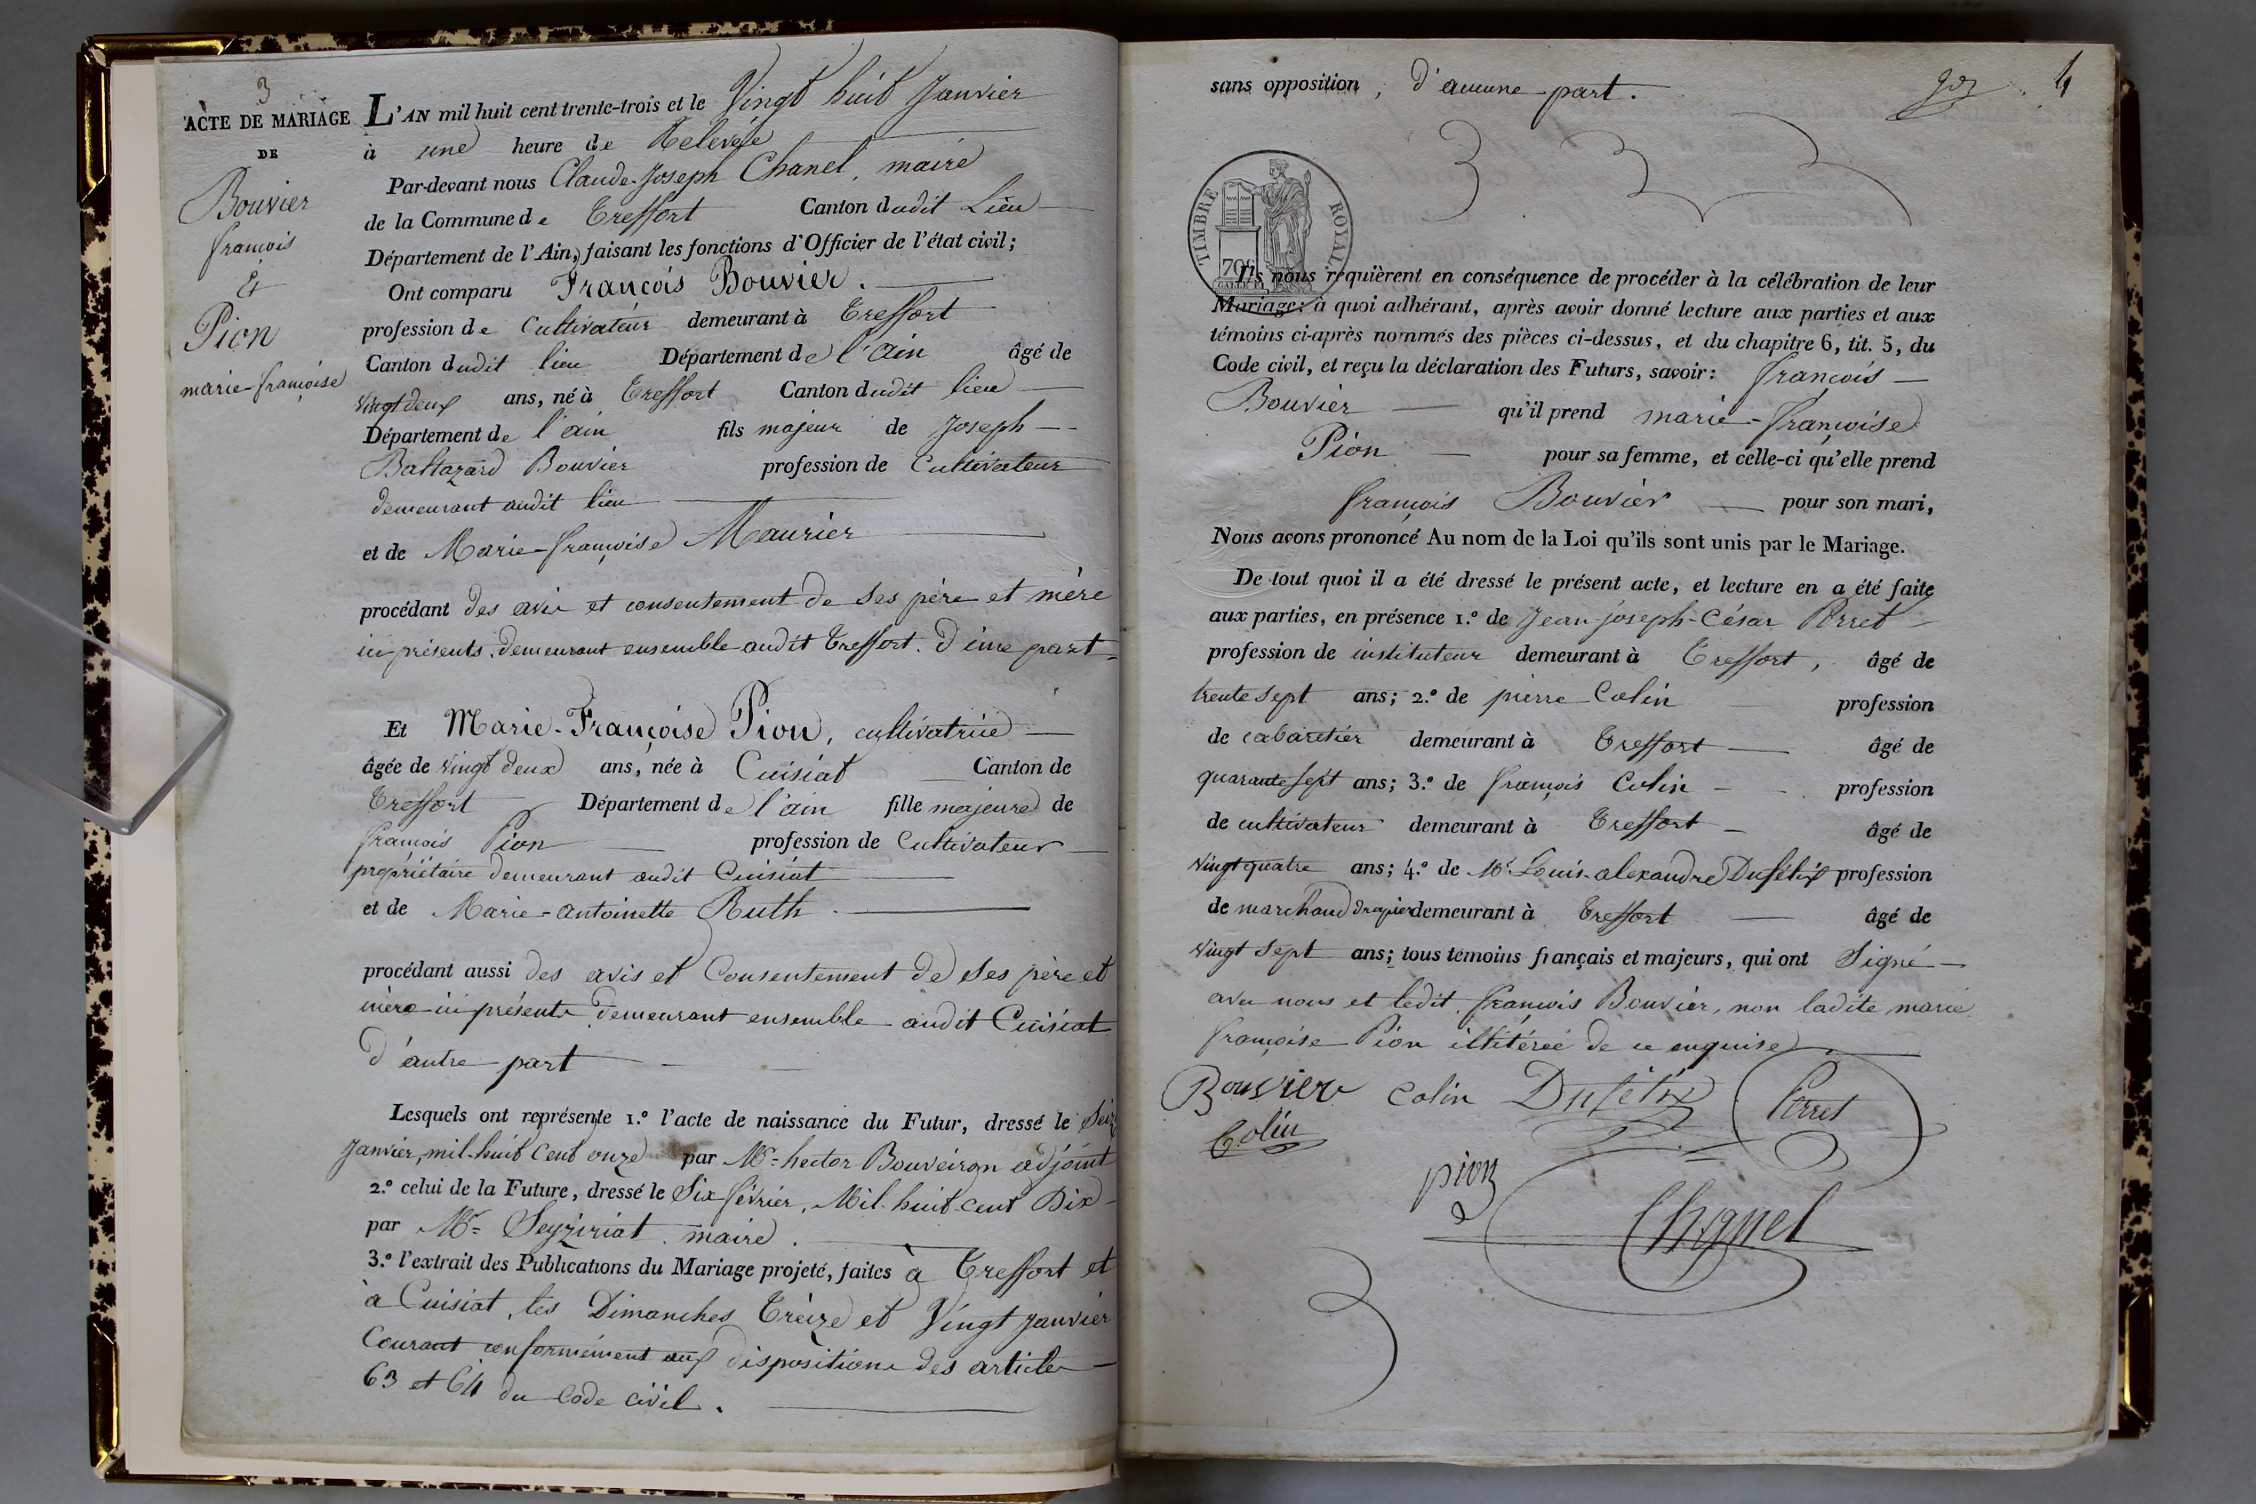 3
ACTE DE MARIAGE
DE
Bouvier
françois
Et
Pion
marie-françoise
L'AN mil huit cent trente-trois et le Vingt huit Janvier
à une heure de Relevée
Par-devant nous Claude-Joseph Chanel, maire
de la Commune de Treffort Canton dudit Lieu
Département de l'Ain, faisant les fonctions d'Officier de l'état civil;
Ont comparu François Bouvier.
profession de Cultivateur demeurant à Treffort
Canton dudit lieu Département de l'ain âgé de
vingt deux ans, né à Treffort Canton dudit lieu
Département de l'ain fils majeur de Joseph
Baltazard Bouvier profession de Cultivateur
demeurant audit lieu
et de Marie-françoise Maurier
procédant des avis et consentement de ses père et mère
ici présents, demeurant ensemble audit Treffort. D'une part
Et Marie-Françoise Pion, cultivatrice
âgée de vingt deux ans, née à Cuisiat Canton de
Treffort Département de l'ain fille majeure de
françois Pion profession de Cultivateur
propriétaire demeurant audit Cuisiat
et de Marie-antoinette Ruth.
procédant aussi des avis et Consentement de ses père et
mère ici présents demeurant ensemble audit Cuisiat
D'autre part
Lesquels ont représenté 1.º l'acte de naissance du Futur, dressé le Seize
Janvier, mil-huit cent onze par Mr. hector Bouveiron adjoint
2.º celui de la Future, dressé le Six février, Mil-huit-cent Dix
par Mr. Seyziriat, maire.
3.º l'extrait des Publications du Mariage projeté, faites à Treffort et
à Cuisiat, les Dimanches Treize et Vingt Janvier
Courant conformément aux dispositions des articles
63 et 64 du Code civil.
sans opposition, d'aucune part.
4
TIMBRE ROYAL
70c
Ils nous requièrent en conséquence de procéder à la célébration de leur
Mariage: à quoi adhérant, après avoir donné lecture aux parties et aux
témoins ci-après nommés des pièces ci-dessus, et du chapitre 6, tit. 5, du
Code civil, et reçu la déclaration des Futurs, savoir: françois
Bouvier qu'il prend marie-françoise
Pion pour sa femme, et celle-ci qu'elle prend
françois Bouvier pour son mari,
Nous avons prononcé Au nom de la Loi qu'ils sont unis par le Mariage.
De tout quoi il a été dressé le présent acte, et lecture en a été faite
aux parties, en présence 1.º de Jean-joseph-César Perret
profession de instituteur demeurant à Treffort, âgé de
trente sept ans; 2.º de pierre Colin profession
de cabaretier demeurant à Treffort âgé de
quarante sept ans; 3.º de françois Colin profession
de cultivateur demeurant à Treffort âgé de
vingt quatre ans; 4.º de Mr. Louis-alexandre Dufélix profession
de marchand drapier demeurant à Treffort âgé de
vingt sept ans; tous témoins français et majeurs, qui ont Signé
avec nous et ledit françois Bouvier, non ladite marie
françoise Pion illitérée de ce enquise
Bouvier Colin Dufélix Perret
Colin
pion
Chanel